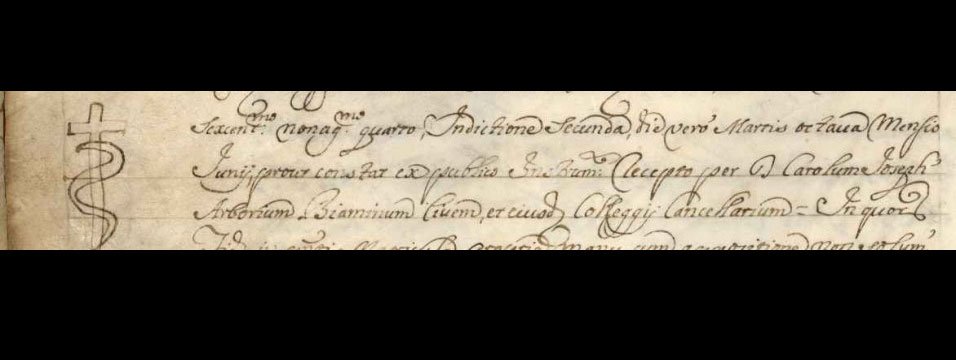 sexent.mo nonag.mo quarto, Indictione Secunda, die vero Martis octava Mensis
Junij, prout constat ex publico Instrum.to Recepto per D Carolum Joseph
Arborium Biaminum Civem, et eiusd Colleggij Cancellarium = In quor